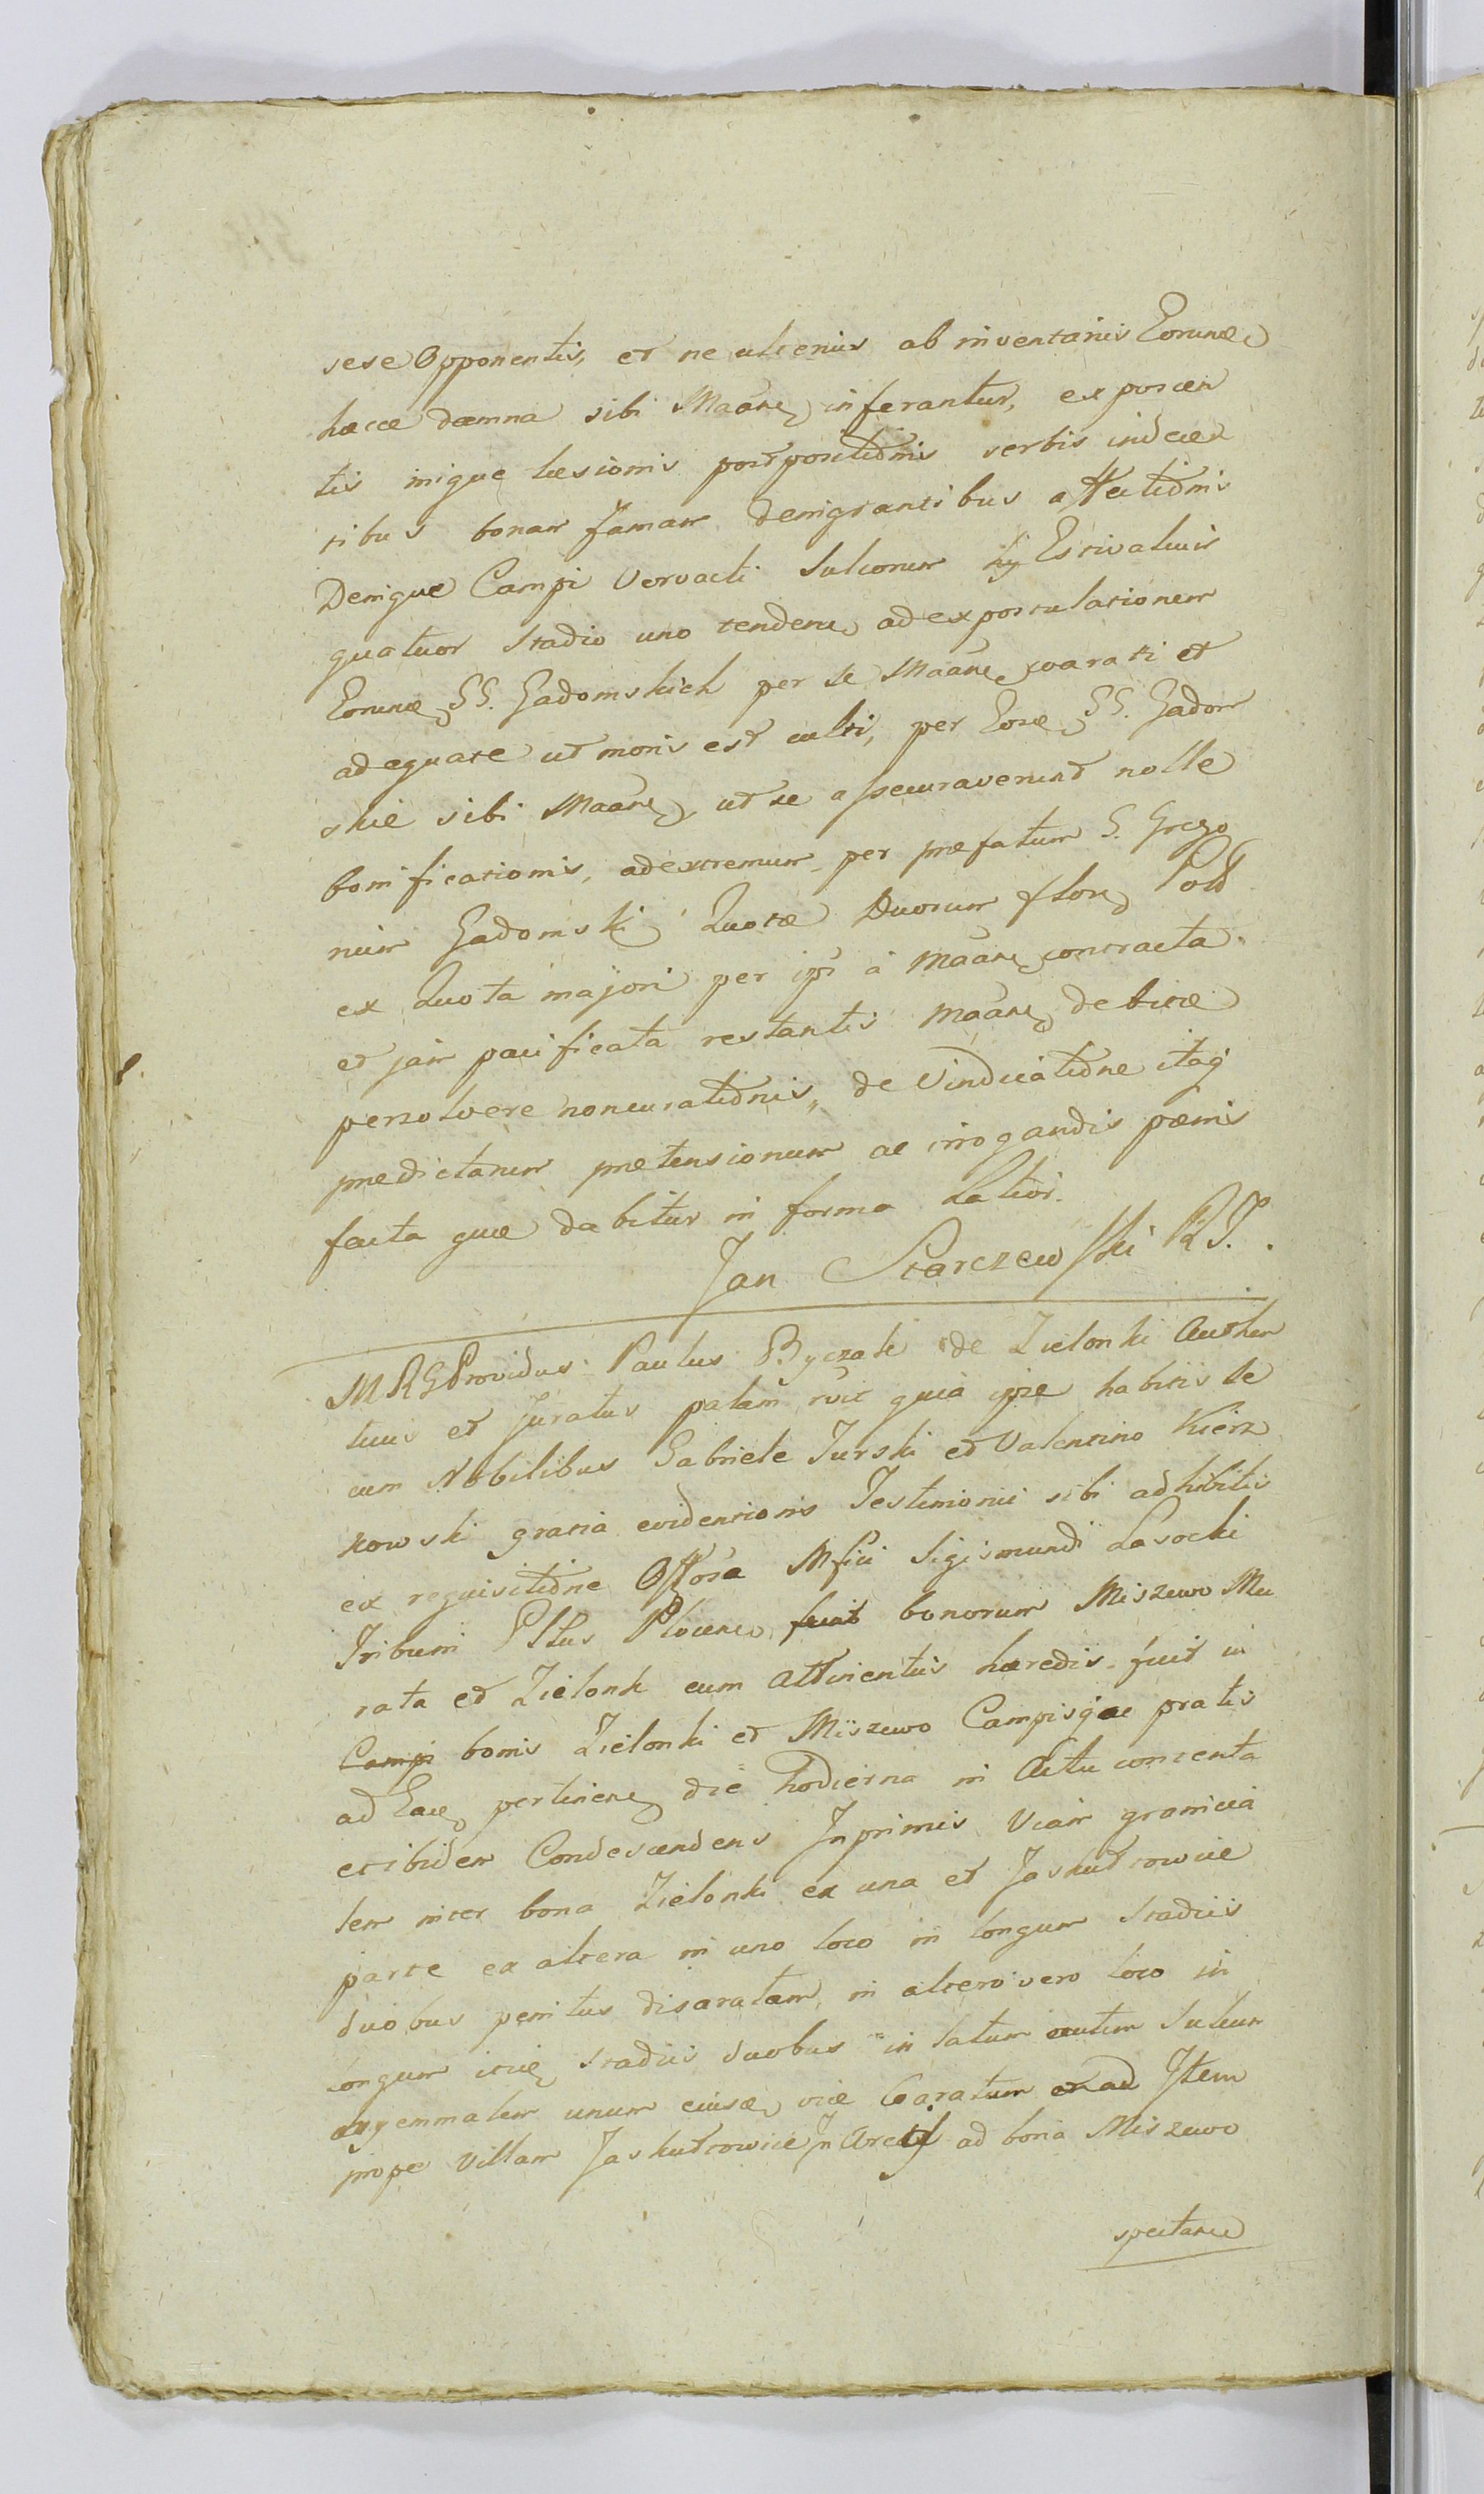 sese Opponentis, et ne ulterius ab inventarius Eorund
hæcce damna sibi Maane inferantur, exposcen
tis inique læsionis postpositionis verbis indecen
tibus bonam famam denigrantibus affectionis
Denique Campi Vervacti Sulcorum Estivalium
quatuor stadio uno tenden ad expostulationem
Eorund GG. Gadomskich per se Maane xarati et
adequate ut moris est culti, per Eosd GG. Gadom
skie sibi Maane, ut se assecuraverunt nolle
bonificationis, ad extremum per præfatum G. Grego
rium Gadomski Quotæ Duorum flore Pold
ex Quota majori per ipm a Maane contracta
et jam pacificata restantis Maane debitæ
persolvere noncurationis, de Vindicatione itaq
predictarum prætensionum ac irrogandis pænis
facta quæ dabitur in forma Latiori.
Jan Starczewski RJ.
MRG Providus Paulus Byczak de Zielonki Authen
ticus et Juratus palam rvit quia ipse habitis se
cum Nobilibus Gabriele Turski et Valentino Kierz
kowski gratia evidentioris Testimonii sibi adhibitis
ex requisitione Offosa Mfici Sigismundi Lasocki
Tribuni Pltus Plocen bonorum Miszewo Mu
rata et Zielonk cum attinentiis hæredis fuit in
Campi bonis Zielonki et Miszewo Campisq ac pratis
ad Ead pertinen die hodierna in Actu contenta
et ibidem Condescendens Inprimis Viam granicia
lem inter bona Zielonki ex una et Jaskułtowice
parte ex altera in uno loco in longum stadiis
duobus penitus disaratam, in altero vero loco in
longum itid stadiis duobus in latum autem Sulcum
unum eiusd viæ Item
prope Villam Jaskułtowice ad bona Miszewo
spectan